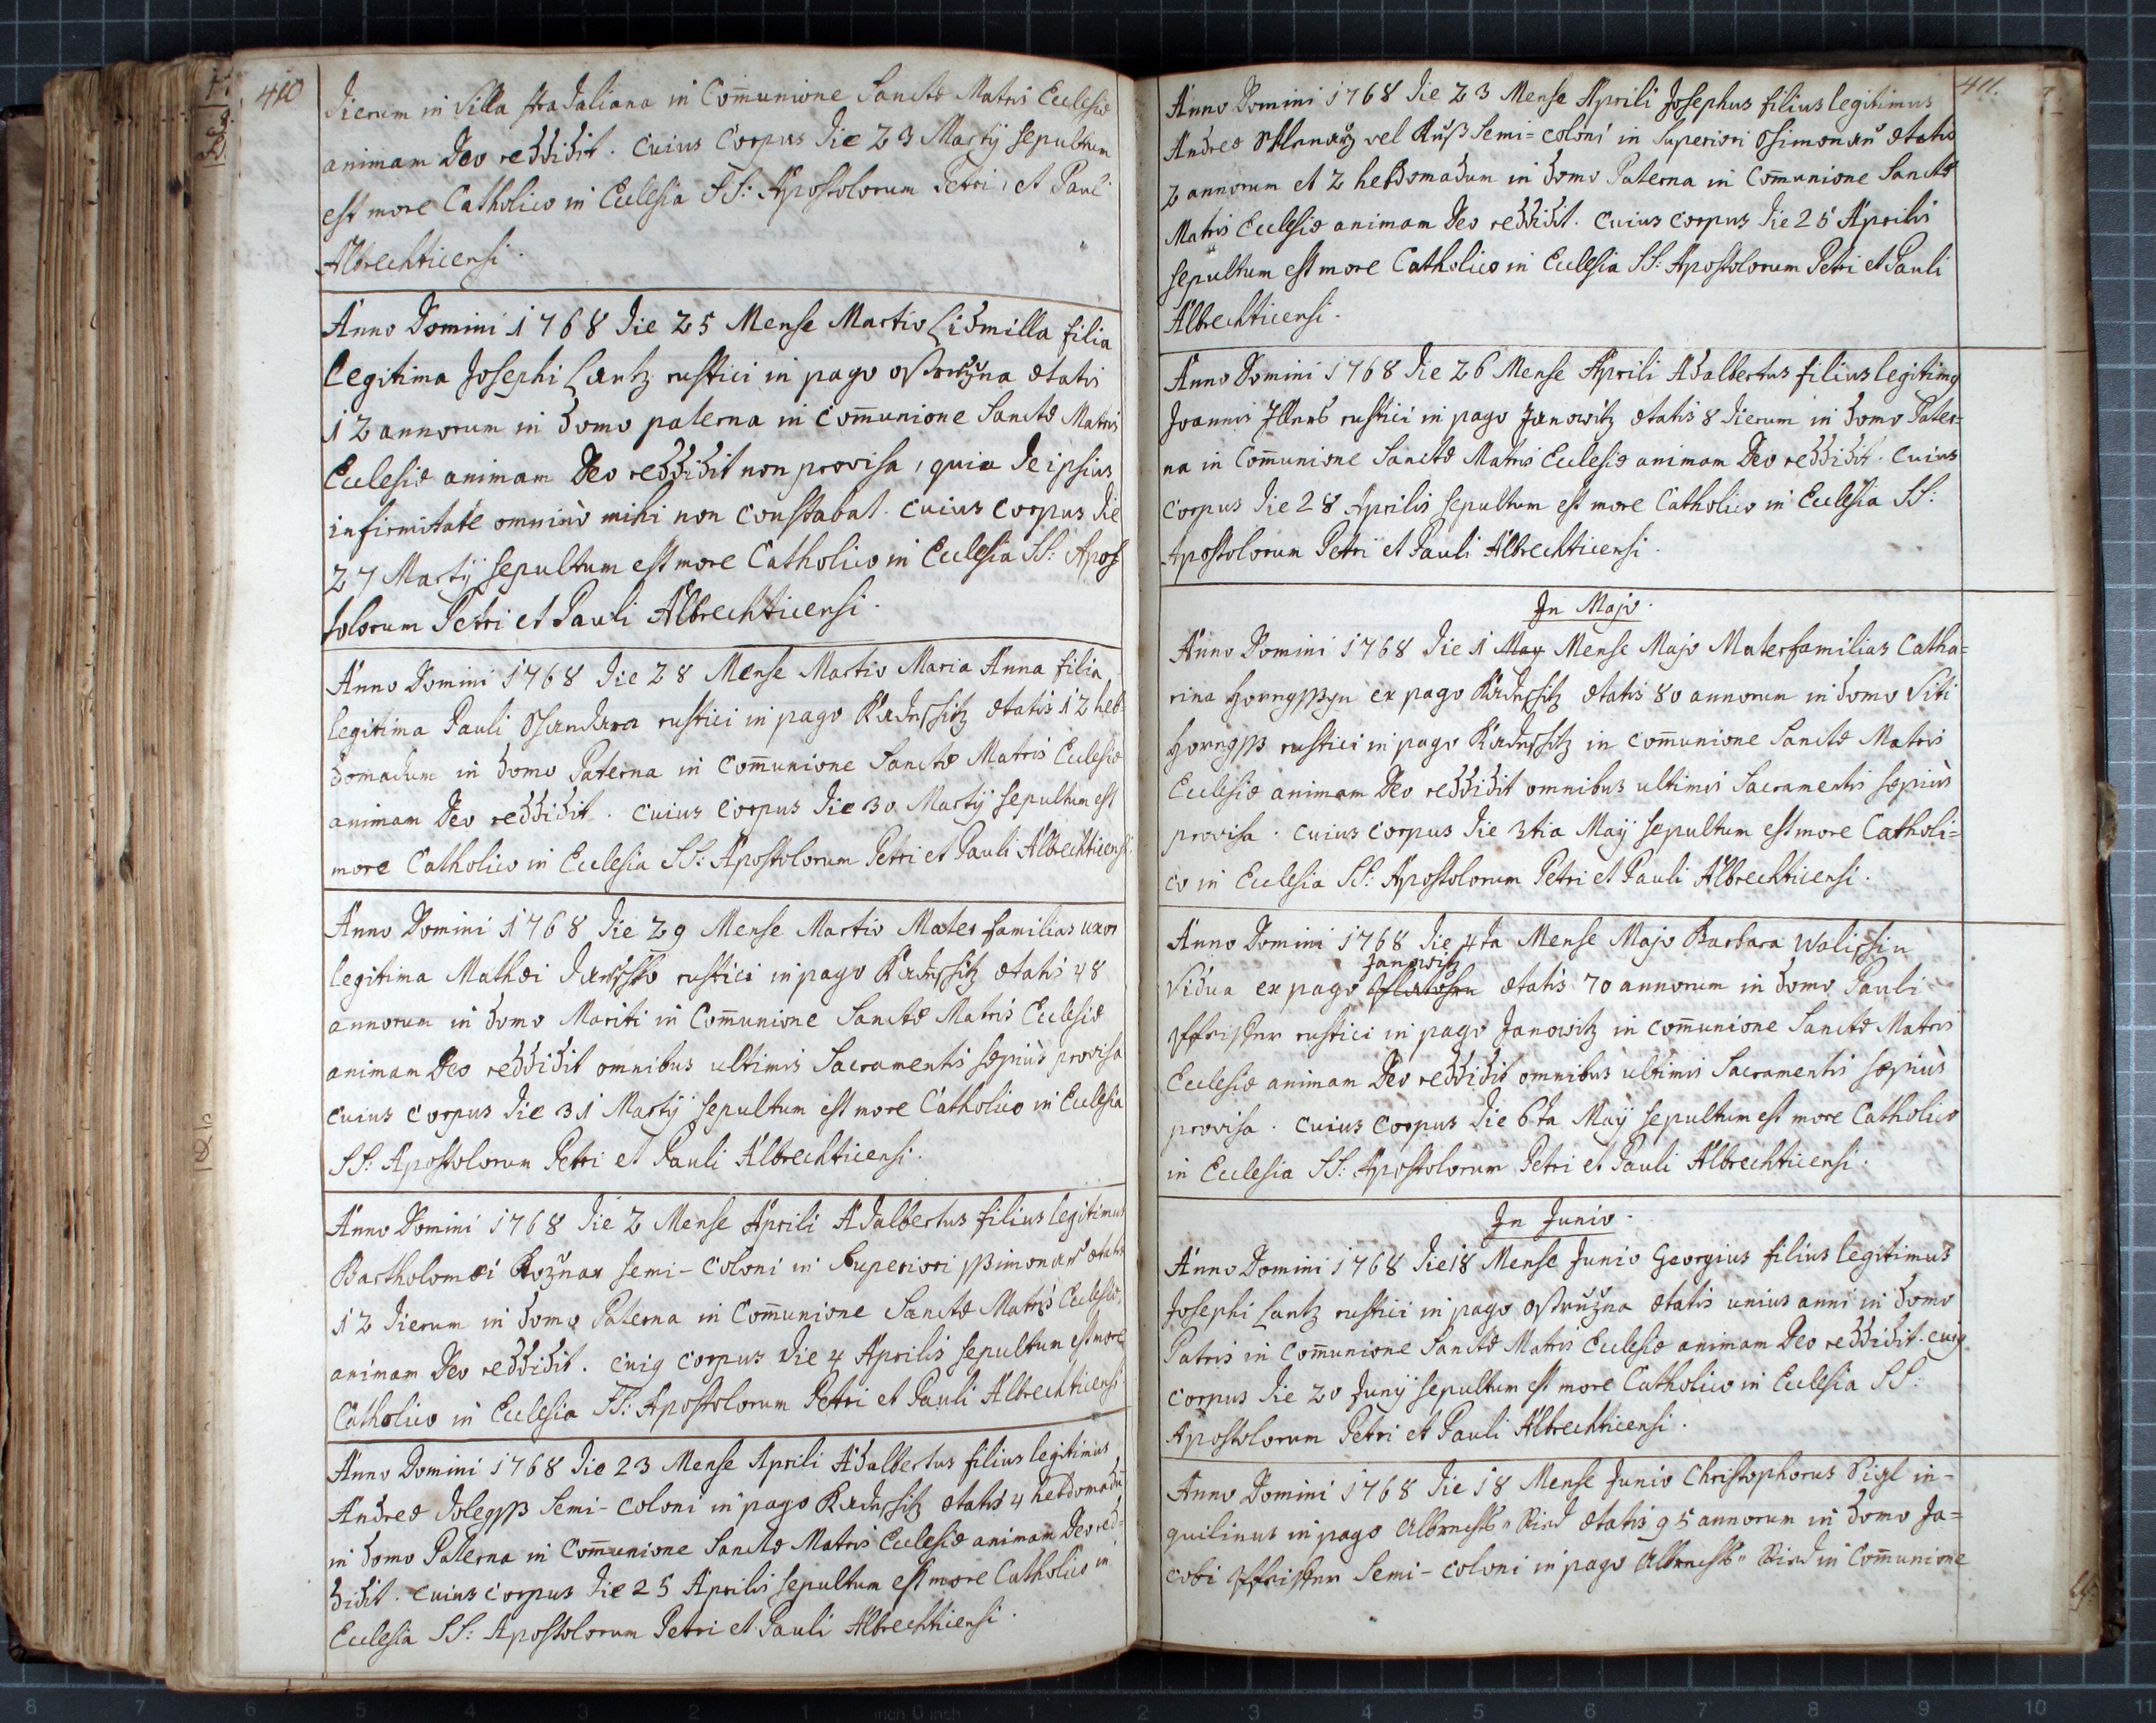 410
dierum in Villa Stradaliana in Com̄unione Sanctæ Matris Ecclesiæ
animam Deo reddidit. Cuius Corpus die 23 Martÿ sepultum
est more Catholico in Ecclesia SS: Apostolorum Petri, et Pauli
Albrechticensi.
Anno Domini 1768 die 25 Mense Martio Lidmilla filia
legitima Josephi Lantz rustici in pago Ostružna ætatis
12 annorum in domo paterna in Com̄unione Sanctæ Matris
Ecclesiæ animam Deo reddidit non provisa, quia de ipsius
infirmitate omninò mihi non constabat. Cuius Corpus die
27 Martÿ sepultum est more Catholico in Ecclesia SS: Apos
tolorum Petri et Pauli Albrechticensi.
Anno Domini 1768 die 28 Mense Martio Maria Anna filia
legitima Pauli rustici in pago Kadessitz ætatis 12 heb
domadum in domo Paterna in Com̄unione Sanctæ Matris Ecclesiæ
animam Deo reddidit. Cuius Corpus die 30 Martÿ sepultum est
more Catholico in Ecclesia SS: Apostolorum Petri et Pauli Albrechticensi.
Anno Domini 1768 die 29 Mense Martio Mater familias uxor
legitima Mathæi rustici in pago Kadessitz ætatis 48
annorum in domo Mariti in Com̄unione Sanctæ Matris Ecclesiæ
animam Deo reddidit omnibus ultimis Sacramentis sæpiùs provisa
Cuius Corpus die 31 Martÿ sepultum est more Catholico in Ecclesia
SS: Apostolorum Petri et Pauli Albrechticensi.
Anno Domini 1768 die 2 Mense Aprili Adalbertus filius legitimus
Bartholomæi Rožnax semi-coloni in Superiori ætatis
12 dierum in domo Paterna in Com̄unione Sanctæ Matris Ecclesiæ
animam Deo reddidit. Cuig Corpus die 4 Aprilis sepultum est more
Catholico in Ecclesia SS: Apostolorum Petri et Pauli Albrechticensi.
Anno Domini 1768 die 23 Mense Aprili Adalbertus filius legitimus
Andreæ semi-coloni in pago Kadessitz ætatis 4 hebdomadū
in domo Paterna in Com̄unione Sanctæ Matris Ecclesiæ animam Deo red=
didit. Cuius Corpus die 25 Aprilis sepultum est more Catholico in
Ecclesia SS: Apostolorum Petri et Pauli Albrechticensi.
411.
Anno Domini 1768 die 23 Mense Aprili Josephus filius legitimus
Andreæ vel Ruß Semi=coloni in Superiori ætatis
2 annorum et 2 hebdomadum in domo Paterna in Com̄unione Sanctæ
Matris Ecclesiæ animam Deo reddidit. Cuius Corpus die 25 Aprilis
sepultum est more Catholico in Ecclesia SS: Apostolorum Petri et Pauli
Albrechticensi.
Anno Domini 1768 die 26 Mense Aprili Adalbertus filius legitimg
Joannis rustici in pago Janowitz ætatis 8 dierum in domo Pater=
na in Com̄unione Sanctæ Matris Ecclesiæ animam Deo reddidit. Cuius
Corpus die 28 Aprilis sepultum est more Catholico in Ecclesia SS:
Apostolorum Petri et Pauli Albrechticensi.
In Majo.
Anno Domini 1768 die 1 May Mense Majo Materfamilias Catha=
rina ex pago Kadessitz ætatis 80 annorum in domo Viti
rustici in pago Kadessitz in Com̄unione Sanctæ Matris
Ecclesiæ animam Deo reddidit omnibus ultimis Sacramentis sæpiùs
provisa. Cuius Corpus die 3tia Maÿ sepultum est more Catholi=
co in Ecclesia SS: Apostolorum Petri et Pauli Albrechticensi.
Anno Domini 1768 die 4ta Mense Majo Barbara Walissin
Janowitz
Vidua ex pago ætatis 70 annorum in domo Pauli
rustici in pago Janowitz in Com̄unione Sanctæ Matris
Ecclesiæ animam Deo reddidit omnibus ultimis Sacramentis sæpiùs
provisa. Cuius Corpus die 6ta Maÿ sepultum est more Catholico
in Ecclesia SS: Apostolorum Petri et Pauli Albrechticensi.
In Junio.
Anno Domini 1768 die 18 Mense Junio Georgius filius legitimus
Josephi Lantz rustici in pago Ostružna ætatis unius anni in domo
Patris in Com̄unione Sanctæ Matris Ecclesiæ animam Deo reddidit. Cuig
Corpus die 20 Junÿ sepultum est more Catholico in Ecclesia SS:
Apostolorum Petri et Pauli Albrechticensi.
Anno Domini 1768 die 18 Mense Junio Christophorus Sigl in-
quilinus in pago Ried ætatis 95 annorum in domo Ja=
cobi Semi-coloni in pago Ried in Com̄unione